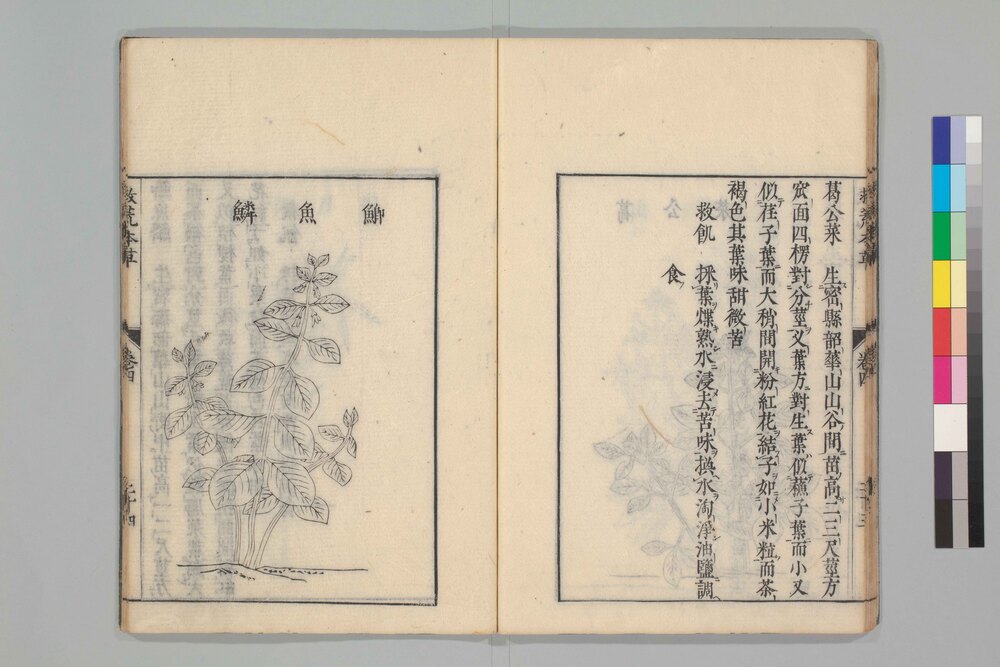 葛公菜 生密縣韶華山山谷間苗高二三尺莖方
窊面四楞對分莖叉葉方對生葉似蘇子葉而小又
似荏子葉而大稍間開粉紅花結子如小米粒而茶
褐色其葉味甜微苦
救飢 採葉煠熟水浸去苦味換水淘淨油鹽調
食
救荒本草 卷四 二十三
鰤魚鱗
救荒本草 卷四 二十四